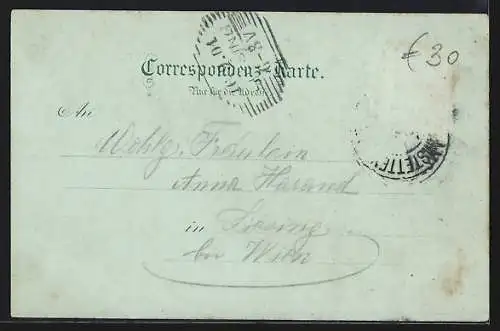 € 30
Correspondenz-Karte.
Nur für die Adresse
An
Wohlg. Fräulein
Anna Harand
in Liesing
bei Wien
AMSTETTEN